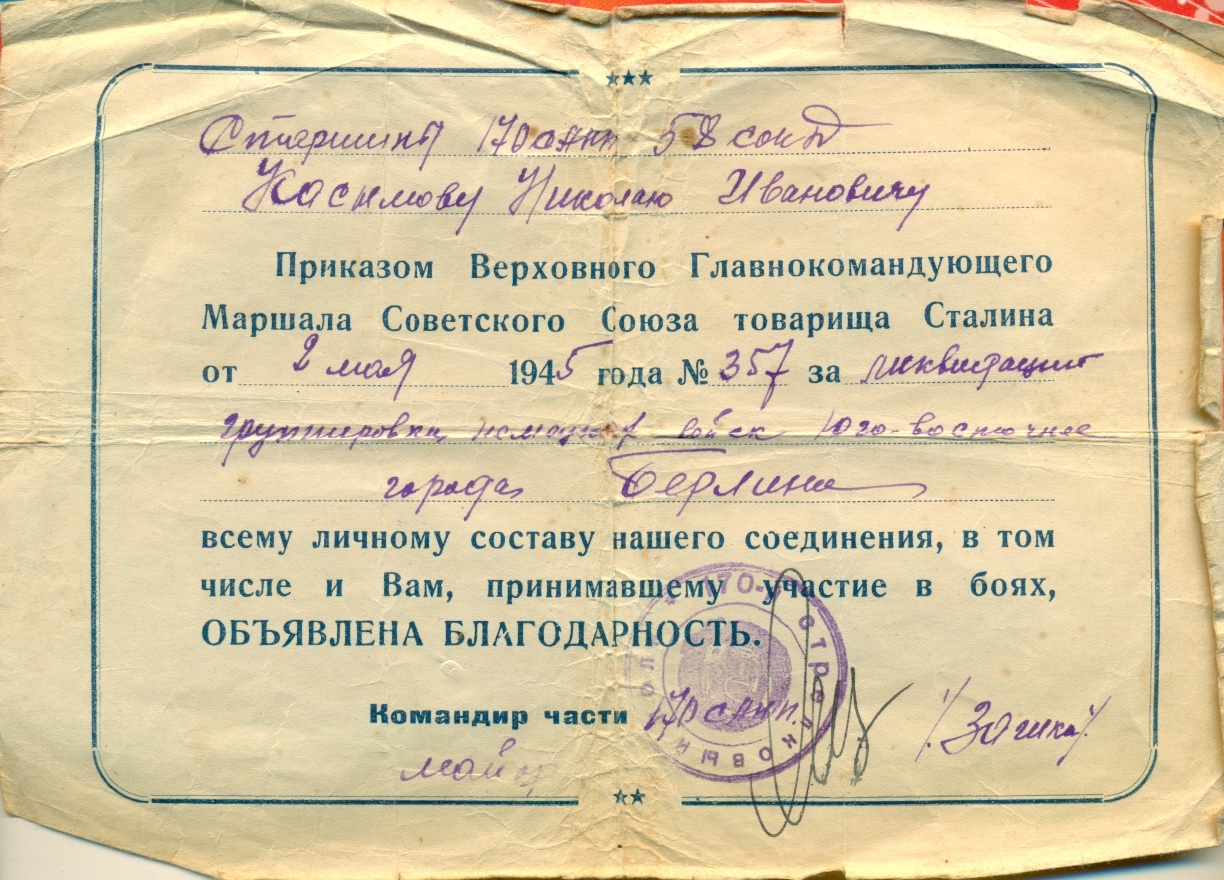 Старшине 170 58
Касимову Николаю Ивановичу
Приказом Верховного Главнокомандующего
Маршала Советского Союза товарища Сталина
от 2 мая 1945 года № 357 за ликвидацию
группировки немецких войск юго-восточнее
города Берлина
всему личному составу нашего соединения, в том
числе и Вам, принимавшему участие в боях,
ОБЪЯВЛЕНА БЛАГОДАРНОСТЬ.
170-й стрелковый полк
Командир части 170
майор